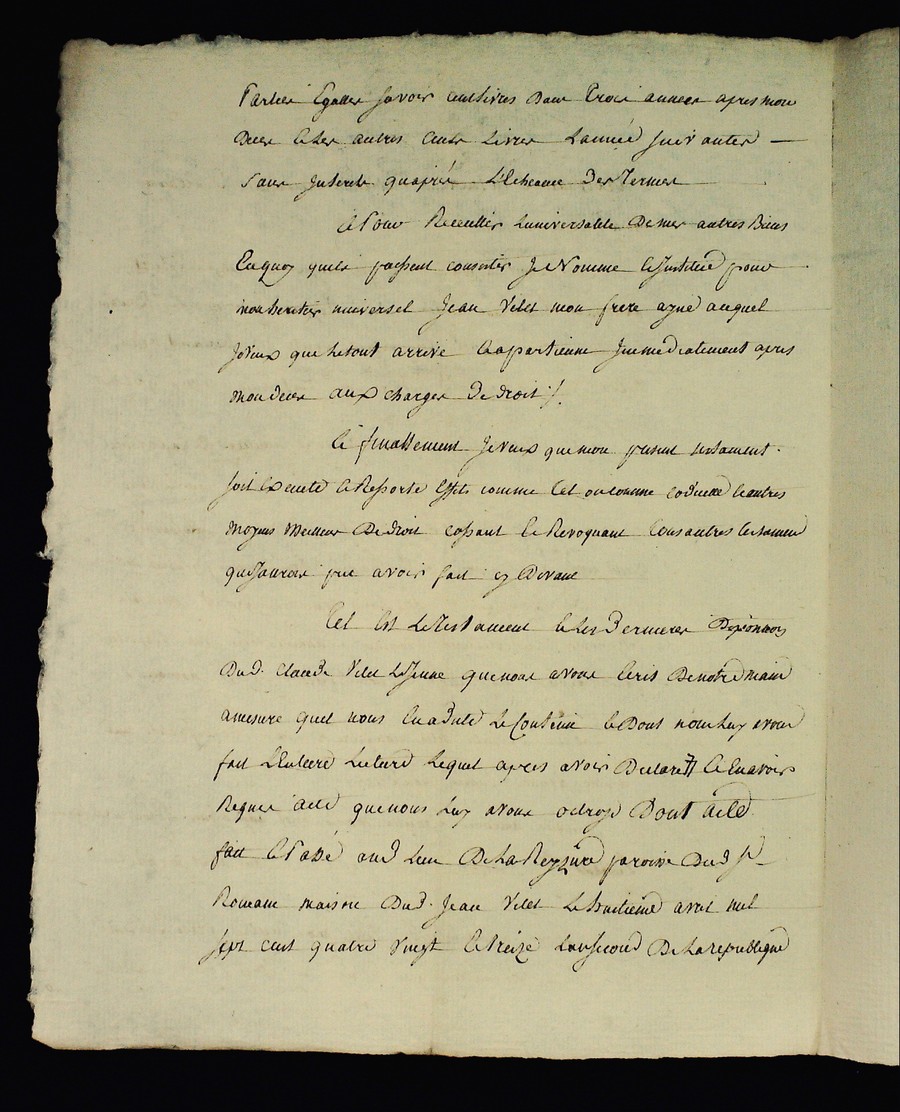 Parties Egalles savoir cent livres dans trois années apres mon
deces et les autres cents Livres Lannée suivantes —
sans interets qu'après L'Echeance des Termes
Et Pour Receullir Luniversalité De mes autres Biens
En quoy quils puissent consister Je Nomme et Institue pour
mon heritier universel Jean Velet mon frere ayné auquel
Je veux que le tout arrive et apartienne Immediatement apres
mon deces aux charges De droit /.
Et finallement Je veux que mon present testament
soit Executé et Ressorte Effets comme tel ou comme codicille et autres
moyens Meilleur De droit cassant et Revoquant tous autres testament
que Jaurois peu avoir fait cy Devant
Tel Est Le Testament et les Dernieres Dispositions
Dud. Claude Velet Le Jeune que nous avons Ecris De notre main
amesure quel nous En a dicté Le Contenu et Dont nous Luy avons
fait L'Entiere Lecture Lequel apres avoir Declaré Et En avoir
Requis acte que nous Luy avons octroyé Dont acte
fait et Passé aud Lieu De La paroisse Dud St
Romain maison Dud. Jean Velet Le huitieme avril mil
sept cent quatre vingt et treize L'an second De La republique